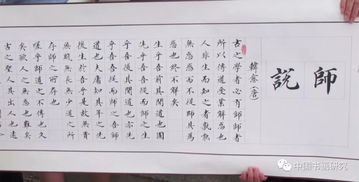 師說
韓愈(唐)
古之學者必有師師者
所以傳道受業解惑也
人非生而知之者孰能
無惑惑而不從師其為
惑也終不解矣
生乎吾前其聞道也固
先乎吾吾從而師之生
乎吾後其聞道也亦先
乎吾吾從而師之吾師
道也夫庸知其年之先
後生於吾乎是故無貴
無賤無長無少道之所
存師之所存也
嗟乎師道之不傳也久
矣欲人之無惑也難矣
古之聖人其出人也遠
中国书画研究